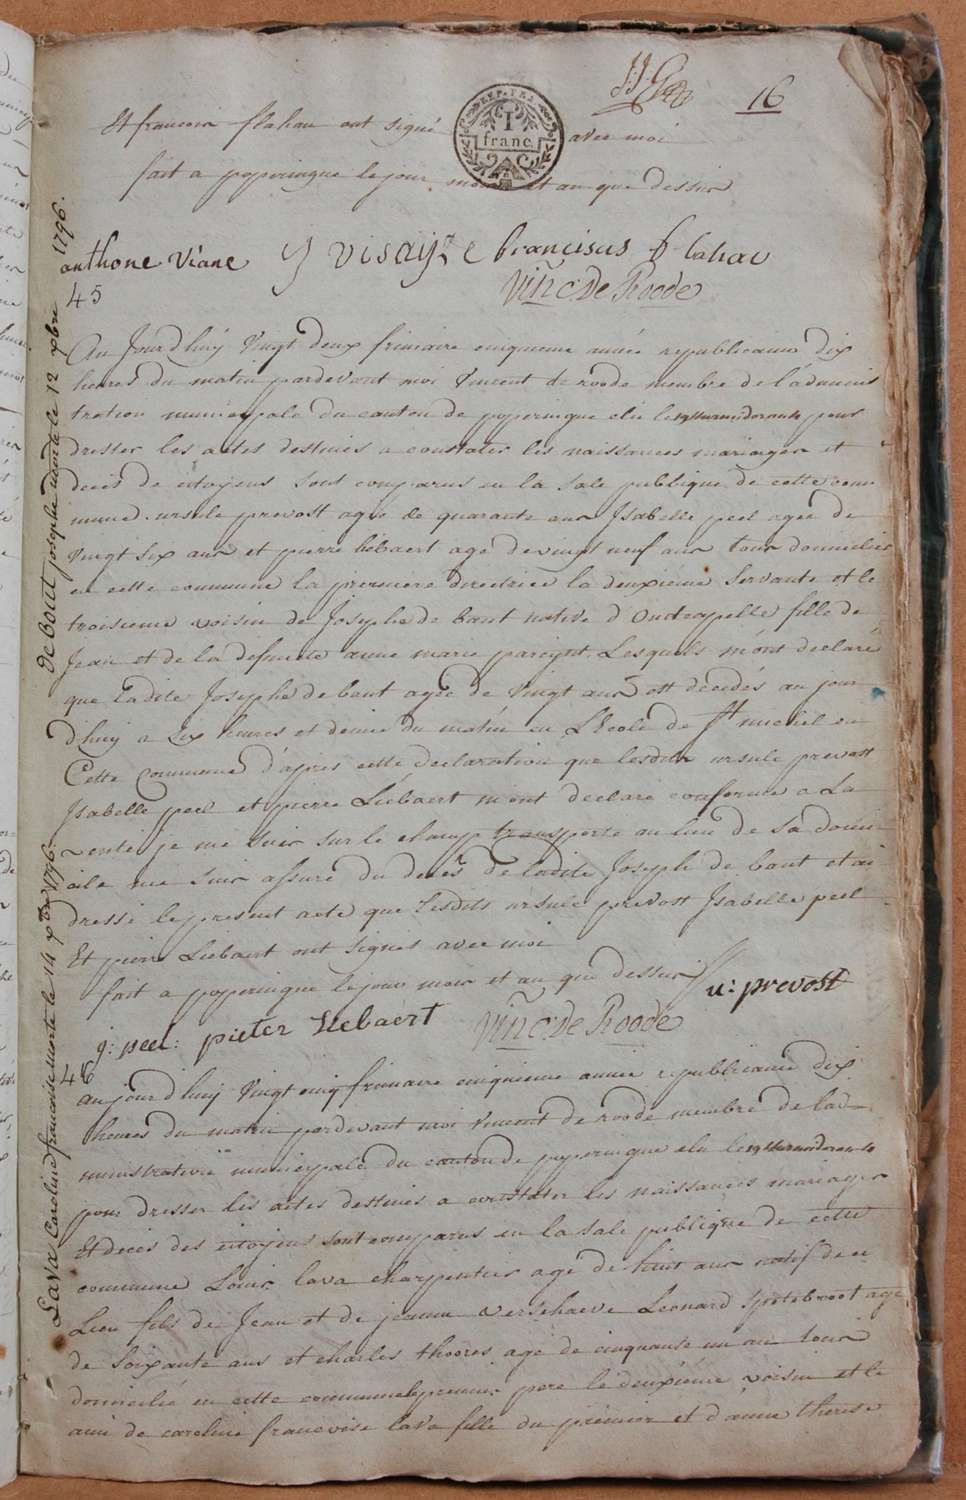 16
REP. FRA.
1
franc.
Et francois flahau ont signé avec moi
fait a poperingue le jour mois et an que dessus
anthone Viane J Visayze franciscus flahau
Vinc: De Roode
45
Au Jourd'huy Vingt deux frimaire cinquieme année republicaine dix
heures du matin pardevant moi Vincent de roode membre de l'adminis
tration municipale du canton de poperingue elu le 19 thermidor an 4 pour
dresser les actes destinés a constater les naissances mariages et
decès de citoyens sont comparus en la sale publique de cette com
mune ursule prevost agée de quarante ans Isabelle peel agée de
vingt six ans et pierre liebaert agé de vingt neuf ans tous domiciliés
en cette commune la premiere directrice la deuxiéme Servante et le
troisieme voisin de Josephe de bout native d'Oudcapelle fille de
Jean et de la defuncte anne marie Lesquels m'ont declaré
que ladite Josephe de bout agée de Vingt ans est décédés au jour
d'huy a six heures et demie du matin en L'Ecole de St michiel en
Cette Commune d'après cette declaration que lesdits ursule prevost
Isabelle peel et pierre Liebaert m'ont declaré conforme a La
verité je me suis sur le champ transporté au lieu de sa domi
cile me suis assuré du decès de ladite Joseph de bout et ai
dressé le present acte que Lesdits ursule prevost Isabelle peel
Et pierre Liebaert ont signés avec moi
fait a poperingue le jour mois et an que dessus
u: prevost
y: peel: pieter Liebaert Vinc: De Roode
46
au jourd'huy Vingt cinq frimaire cinquieme année republicaine dix
heures du matin pardevant moi Vincent de roode membre de lad
ministration municipale du canton de poperingue elu le 19 thermidor an 4
pour dresser les actes destinés a constater les naissances mariages
Et decès des citoyens sont comparus en la sale publique de cette
commune Louis lava charpentier agé de huit ans natif de ce
Lieu fils de Jean et de jeanne verschaeve Leonard spetebroot agé
de soixante ans et charles thooris agé de cinquante un an tous
domiciliés en cette commune le premier pere le deuxiéme voisin et le
ami de caroline francoise lava fille du premier et d'anne therese
de bout josephe morte le 12 xbre 1796.
Lava Caroline francoise morte le 14 xbre 1796.